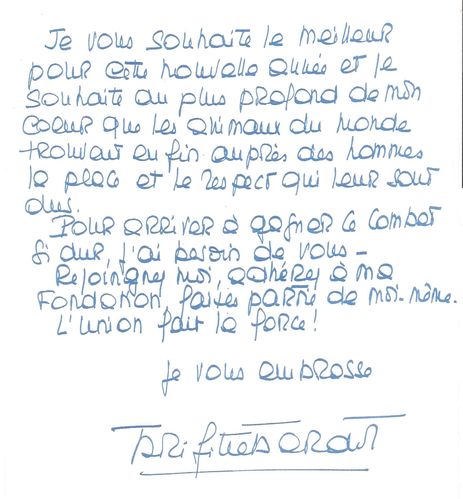 Je vous souhaite le meilleur
pour cette nouvelle année et je
souhaite au plus profond de mon
coeur que les animaux du monde
trouvent enfin auprès des hommes
la place et le respect qui leur sont
dus.
Pour arriver à gagner ce combat
si dur, j'ai besoin de vous -
Rejoignez moi, adhérez à ma
Fondation, faites partie de moi-même.
L'union fait la force!
Je vous embrasse
Brigitte Bardot